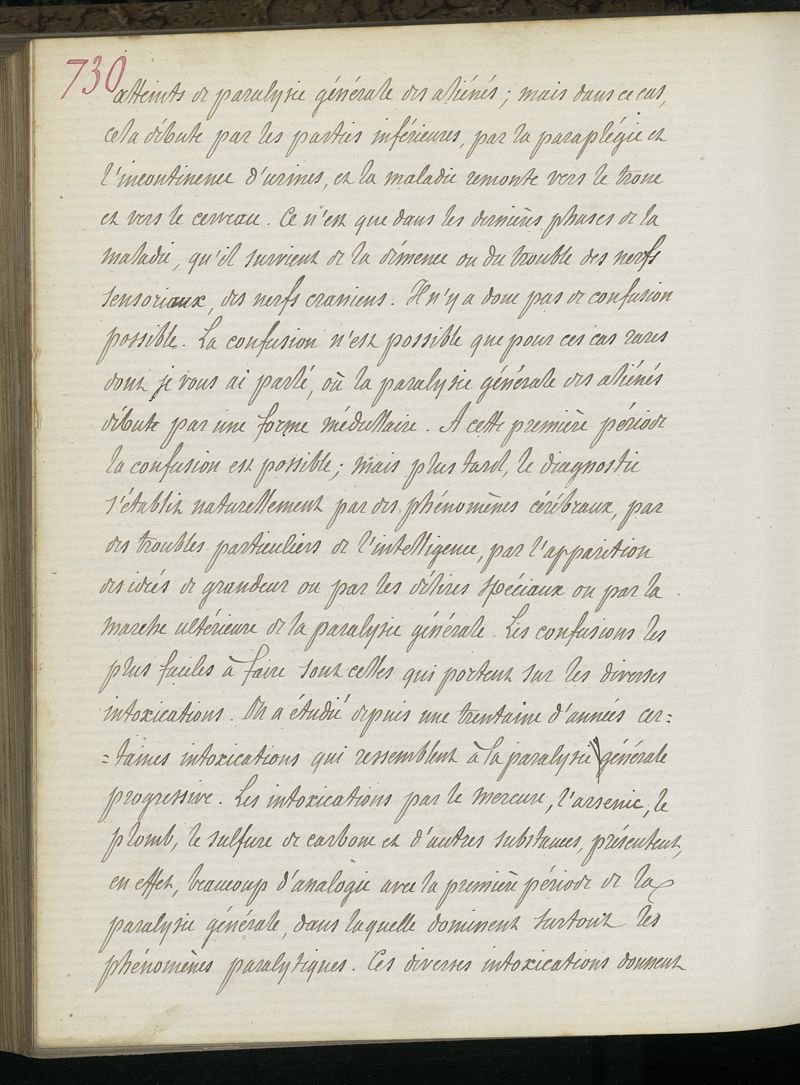 730
atteints de paralysie générale des aliénés ; mais dans ce cas,
cela débute par les parties inférieures, par la paraplégie et
l'incontinence d'urines, et la maladie remonte vers le tronc
et vers le cerveau. Ce n'est que dans les dernières phases de la
maladie, qu'il survient de la démence ou du trouble des nerfs
sensoriaux, des nerfs craniens. Il n'y a donc pas de confusion
possible. La confusion n'est possible que pour ces cas rares
dont je vous ai parlé, où la paralysie générale des aliénés
débute par une forme médullaire. A cette première période
la confusion est possible ; mais plus tard, le diagnostic
s'établit naturellement par des phénomènes cérébraux, par
des troubles particuliers de l'intelligence, par l'apparition
des idées de grandeur ou par les délires spéciaux ou par la
marche ultérieure de la paralysie générale. Les confusions les
plus faciles à faire sont celles qui portent sur les diverses
intoxications. On a étudié depuis une trentaine d'années cer=
=taines intoxications qui ressemblent à la paralysie générale
progressive. Les intoxications par le mercure, l'arsenic, le
plomb, le sulfure de carbone et d'autres substances, présentent,
en effet, beaucoup d'analogie avec la première période de la
paralysie générale, dans laquelle dominent surtout les
phénomènes paralytiques. Ces diverses intoxications donnent